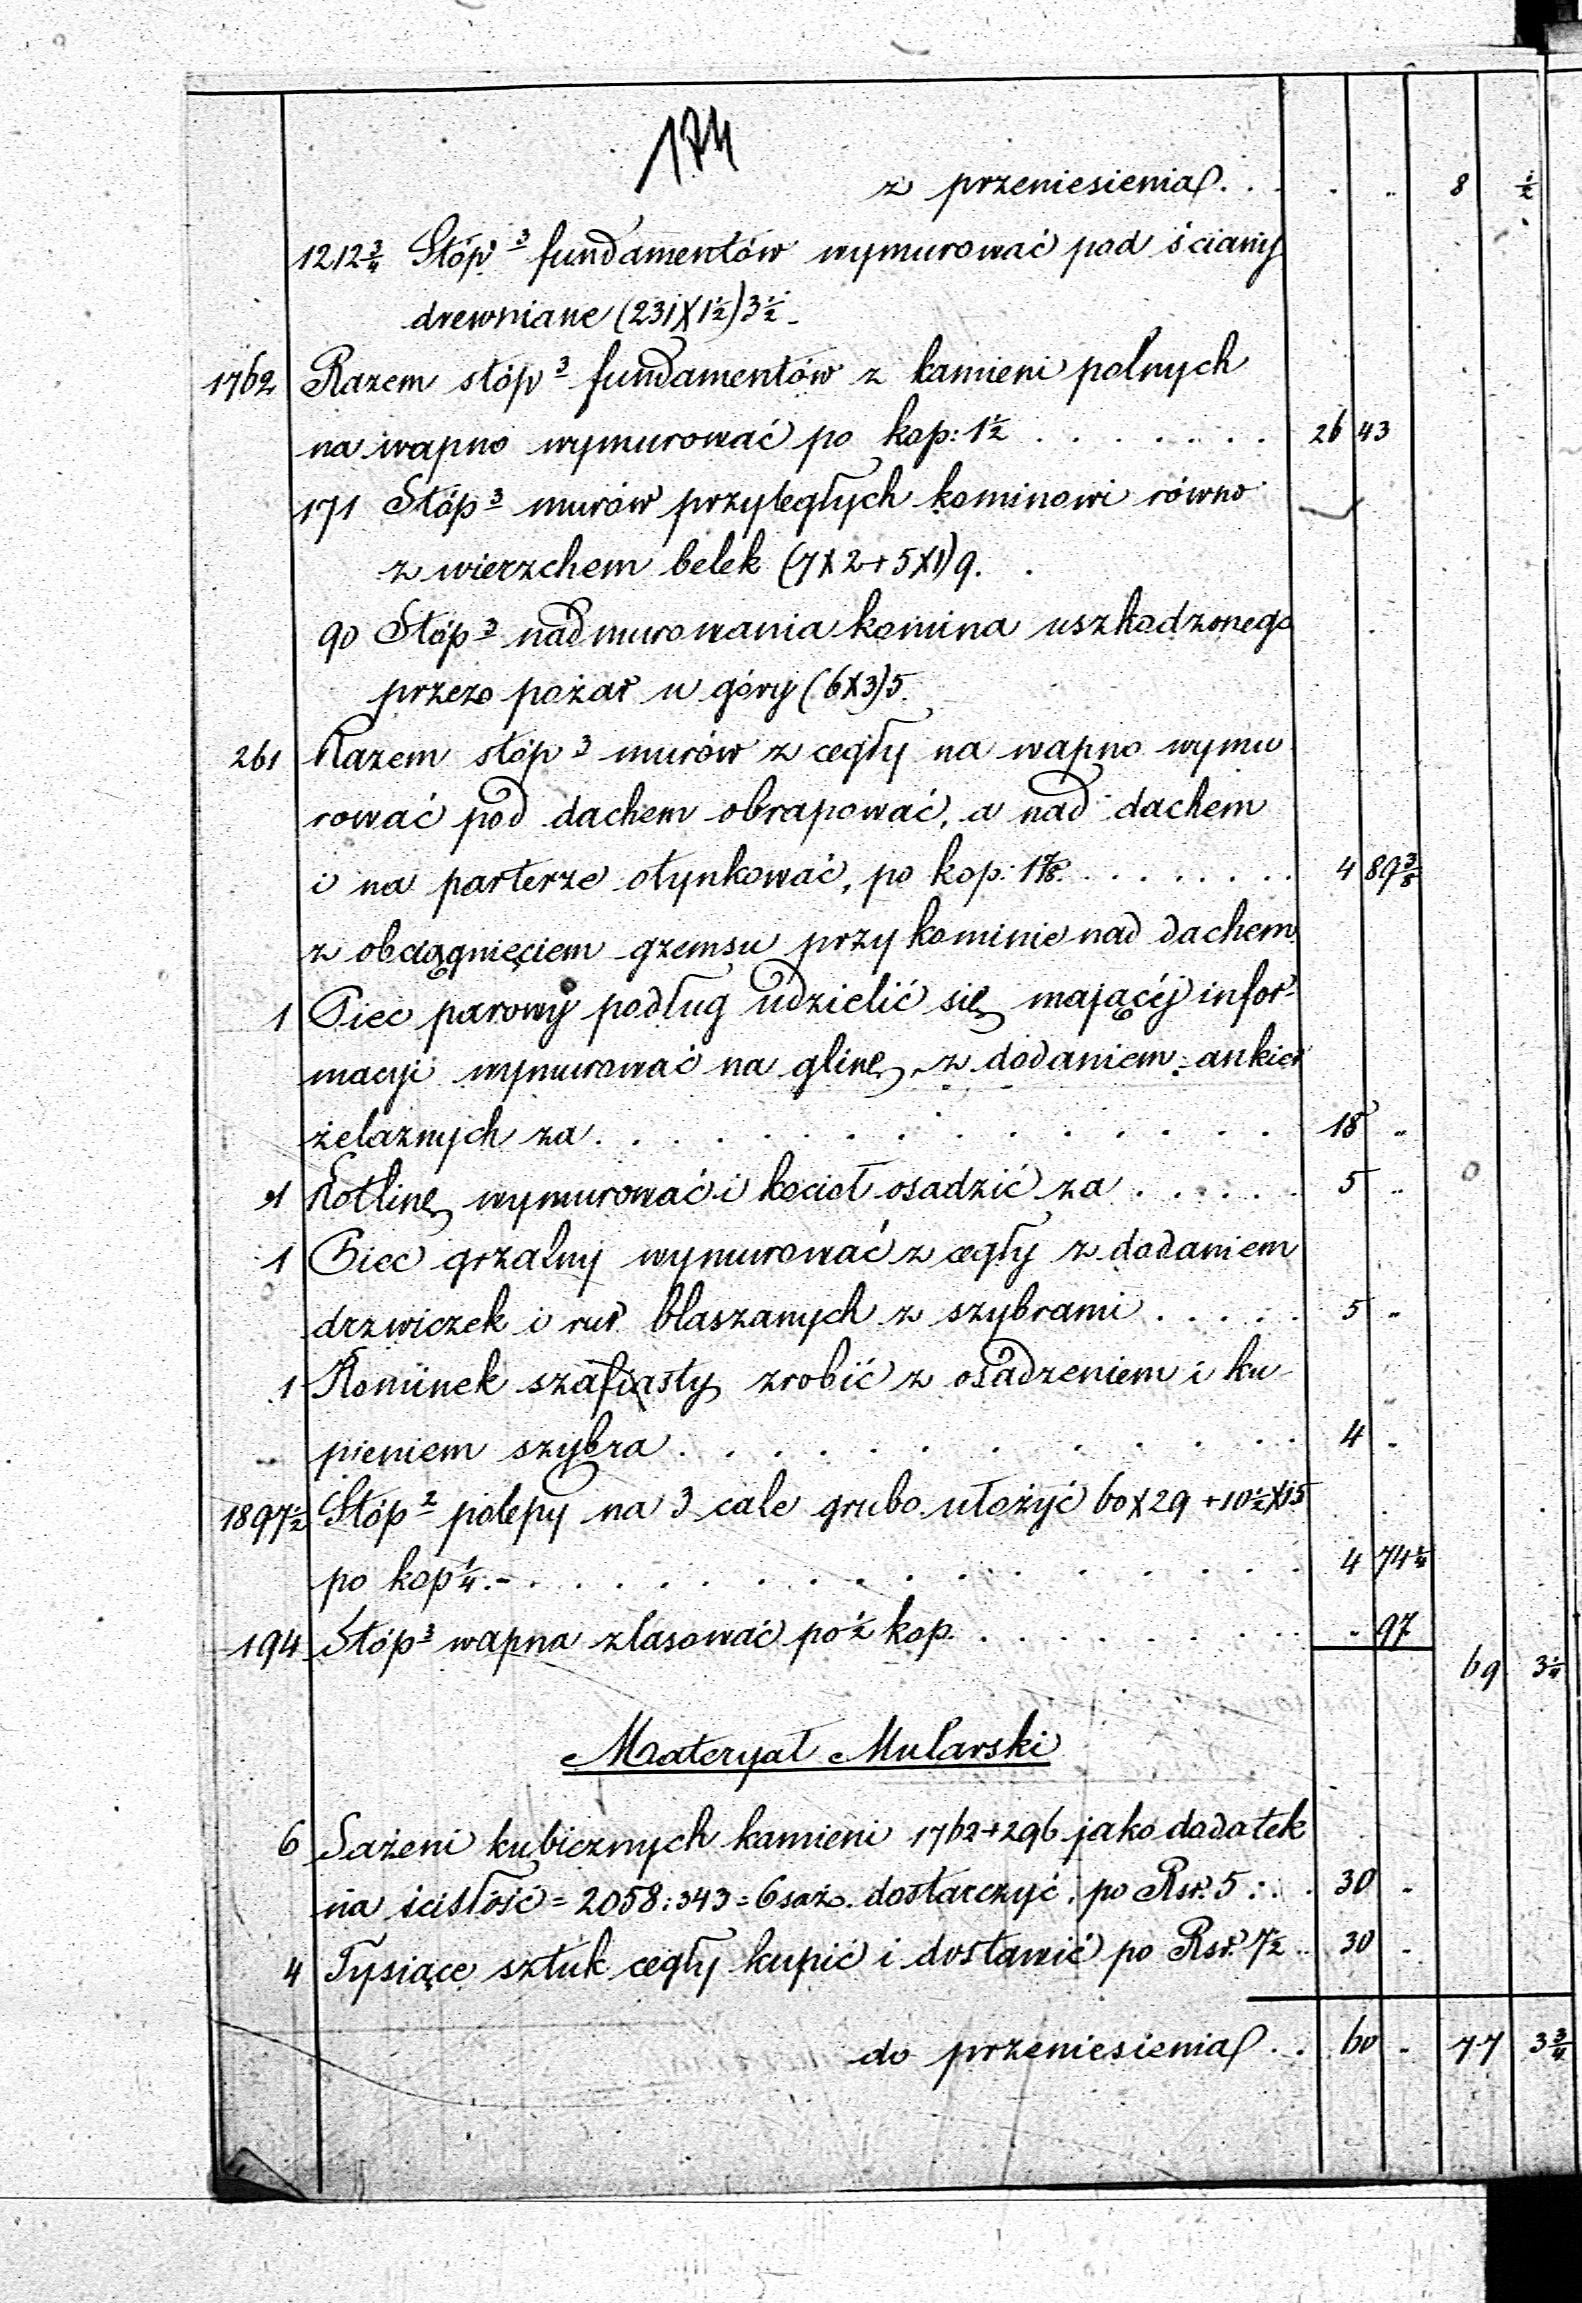 174
z przeniesienia . . . . „ 8 ½
1212¾ Stóp³ fundamentów wymurować pod ściany
drewniane (231X1½)3½.
1762 Razem stóp³ fundamentów z kamieni polnych
na wapno wymurować po kop: 1½ . . . . . . . 26 43
171 Stóp³ murów przyległych kominowi równo
z wierzchem belek (7X2+5X1)9.
90 Stóp³ nadmurowania komina uszkodzonego
przez pożar u góry (6X3)5.
261 Razem stóp³ murów z cegły na wapno wymu
rować pod dachem obrapować, a nad dachem
i na parterze otynkować, po kop: 1⅞ . . . . . . . . 4 89⅜
z obciągnięciem gzemsu przy kominie nad dachem.
1 Piec parowy podług udzielić się mającéj infor-
macyi wymurować na glinę z dodaniem ankier
żelaznych za . . . . . . . . . . . . . 18 „
1 Kotlinę wymurować i kocioł osadzić za . . . . . . 5 „
1 Piec grzalny wymurować z cegły z dodaniem
drzwiczek i rur blaszanych z szybrami . . . . . 5 „
1 Kominek szafiasty zrobić z osadzeniem i ku
pieniem szybra . . . . . . . . . . . . 4 „
1897½ Stóp² polepy na 3 cale grubo ułożyć 60X29+10½X15
po kop ¼ . - . . . . . . . . . . . . . . . 4 74¼
194 Stóp³ wapna zlasować po ½ kop. . . . . . . . . . „ 97
69 3¼
Materyał Mularski
6 Sażeni kubicznych kamieni 1762+296 jako dodatek
na ścisłość = 2058:343=6 saż. dostarczyć po Rsr. 5 . . . 30 „
4 Tysiące sztuk cegły kupić i dostawić po Rsr. 7½ . . 30 „
do przeniesienia . . 60 „ 77 3¾